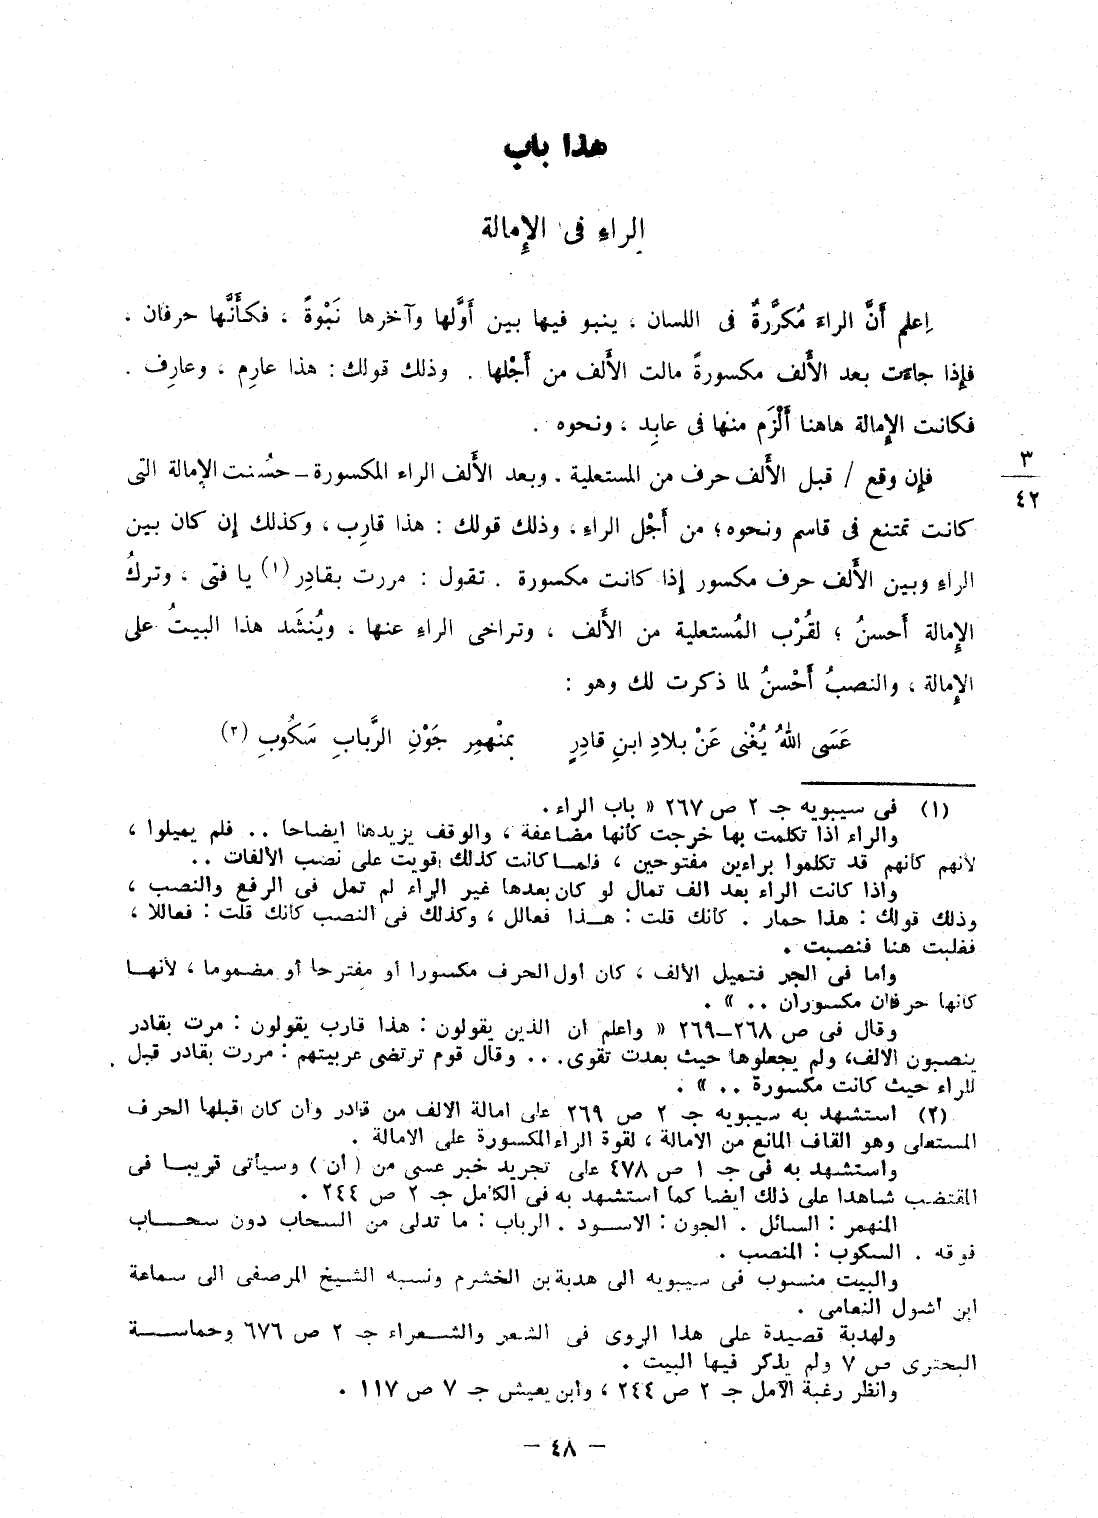 هذا باب
الراءِ فى الإِمالة
اِعلم أَنَّ الراءَ مُكرَّرةٌ فى اللسان ، ينبو فيها بين أَوَّلها وآخرها نَبْوةً ، فكأَنَّها حرفان .
فإِذا جاءَت بعد الأَلف مكسورةً مالت الأَلف من أَجْلها . وذلك قولك : هذا عارِم ، وعارِف .
فكانت الإِمالة هاهنا أَلْزَم منها فى عابِد ، ونحوه .
فإِن وقع / قبل الأَلف حرف من المستعلية . وبعد الأَلف الراء المكسورة – حسُنت الإِمالة التى
٣
٤٢
كانت تمتنع فى قاسم ونحوه ؛ من أَجْل الراءِ ، وذلك قولك : هذا قارِب ، وكذلك إِن كان بين
الراءِ وبين الأَلف حرف مكسور إِذا كانت مكسورة . تقول : مررت بقادِر (١) يا فتى ، وتركُ
الإِمالة أَحسنُ ؛ لقُرْب المُستعلية من الأَلف ، وتراخى الراءِ عنها ، ويُنشَد هذا البيتُ على
الإِمالة ، والنصبُ أَحْسنُ لما ذكرت لك وهو :
عَسَى اللهُ يُغْنى عَنْ بلادِ ابنِ قادِرٍ بمنْهمِر جَوْنِ الرَّبابِ سَكُوبِ (٢)
(١) فى سيبويه جـ ٢ ص ٢٦٧ « باب الراء .
والراء اذا تكلمت بها خرجت كأنها مضاعفة ، والوقف يزيدها ايضاحا .. فلم يميلوا ،
لأنهم كأنهم قد تكلموا براءين مفتوحين ، فلما كانت كذلك قويت على نصب الألفات ..
واذا كانت الراء بعد الف تمال لو كان بعدها غير الراء لم تمل فى الرفع والنصب ،
وذلك قولك : هذا حمار . كأنك قلت : هـذا فعالل ، وكذلك فى النصب كأنك قلت : فعاللا ،
فغلبت هنا فنصبت .
واما فى الجر فتميل الألف ، كان أول الحرف مكسورا أو مفترحا أو مضموما ، لأنهـا
كأنها حرفان مكسوران .. » .
وقال فى ص ٢٦٨–٢٦٩ « واعلم ان الذين يقولون : هذا قارب يقولون : مرت بقادر
ينصبون الالف ، ولم يجعلوها حيث بعدت تقوى. .. وقال قوم ترتضى عربيتهم : مررت بقادر قبل
للراء حيث كانت مكسورة .. » .
(٢) استشهد به سيبويه جـ ٢ ص ٢٦٩ على امالة الالف من قادر وان كان قبلها الحرف
المستعلى وهو القاف المانع من الامالة ، لقوة الراء المكسورة على الامالة .
واستشهد به فى جـ ١ ص ٤٧٨ على تجريد خبر عسى من ( أن ) وسيأتى قريبـا فى
المقتضب شاهدا على ذلك أيضا كما استشهد به فى الكامل جـ ٢ ص ٢٤٤ .
المنهمر : السائل . الجون : الاسود . الرباب : ما تدلى من السحاب دون سحـاب
فوقه . السكوب : المنصب .
والبيت منسوب فى سيبويه الى هدبة بن الخشرم ونسبه الشيخ المرصفى الى سماعة
ابن أشول النعامى .
ولهدبة قصيدة على هذا الروى فى الشعر والشـعراء جـ ٢ ص ٦٧٦ وحماسـة
البحترى ص ٧ ولم يذكر فيها البيت .
وانظر رغبة الآمل جـ ٢ ص ٢٤٤ ، وابن يعيش جـ ٧ ص ١١٧ .
– ٤٨ –